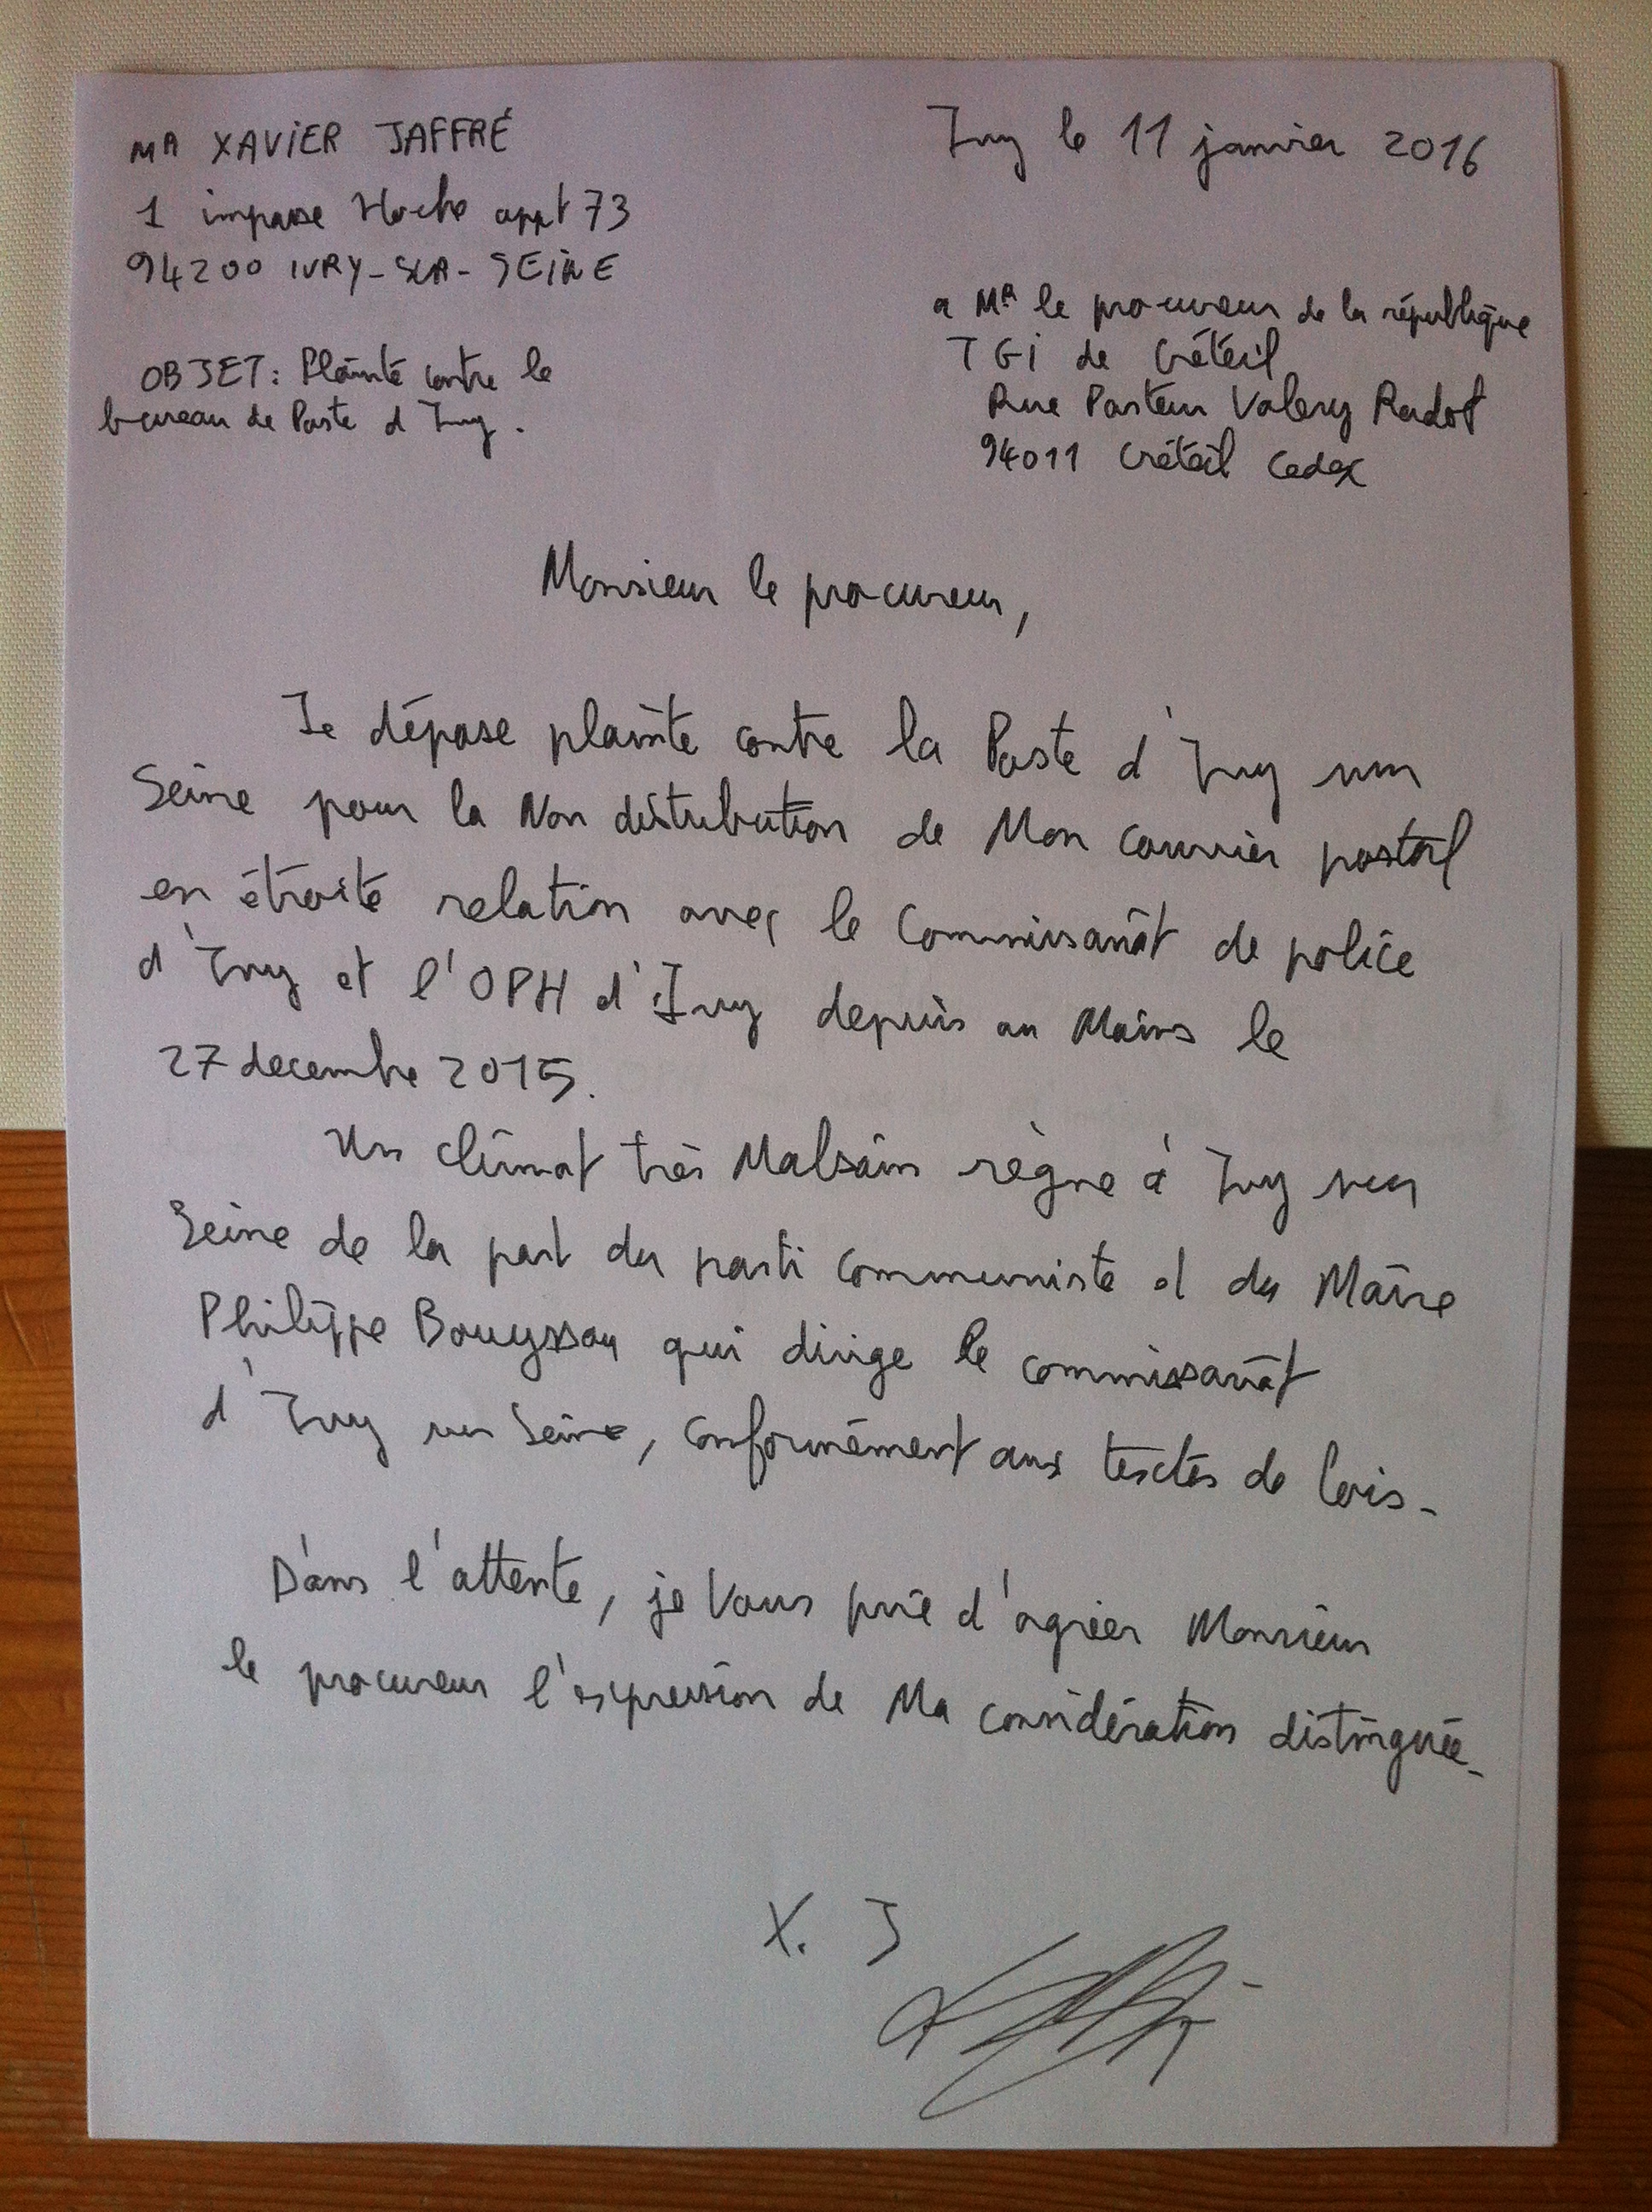 MR XAVIER JAFFRÉ
1 impasse Hoche appt 73
94200 IVRY-SUR-SEINE
OBJET: Plainte contre le
bureau de Poste d Ivry.
Ivry le 11 janvier 2016
a MR le procureur de la république
TGi de Créteil
Rue Pasteur Valery Radot
94011 Créteil Cedex
Monsieur le procureur,
Je dépose plainte contre la Poste d'Ivry sur
Seine pour la Non distribution de Mon courrier postal
en étroite relation avec le Commissariat de police
d'Ivry et l'OPH d'Ivry depuis au Moins le
27 decembre 2015.
Un climat très Malsain règne à Ivry sur
Seine de la part du parti communiste et du Maire
Philippe Bouyssou qui dirige le commissariat
d'Ivry sur Seine, conformément aux textes de lois.
Dans l'attente, je Vous prie d'agréer Monsieur
le procureur l'expression de Ma considération distinguée.
X. J